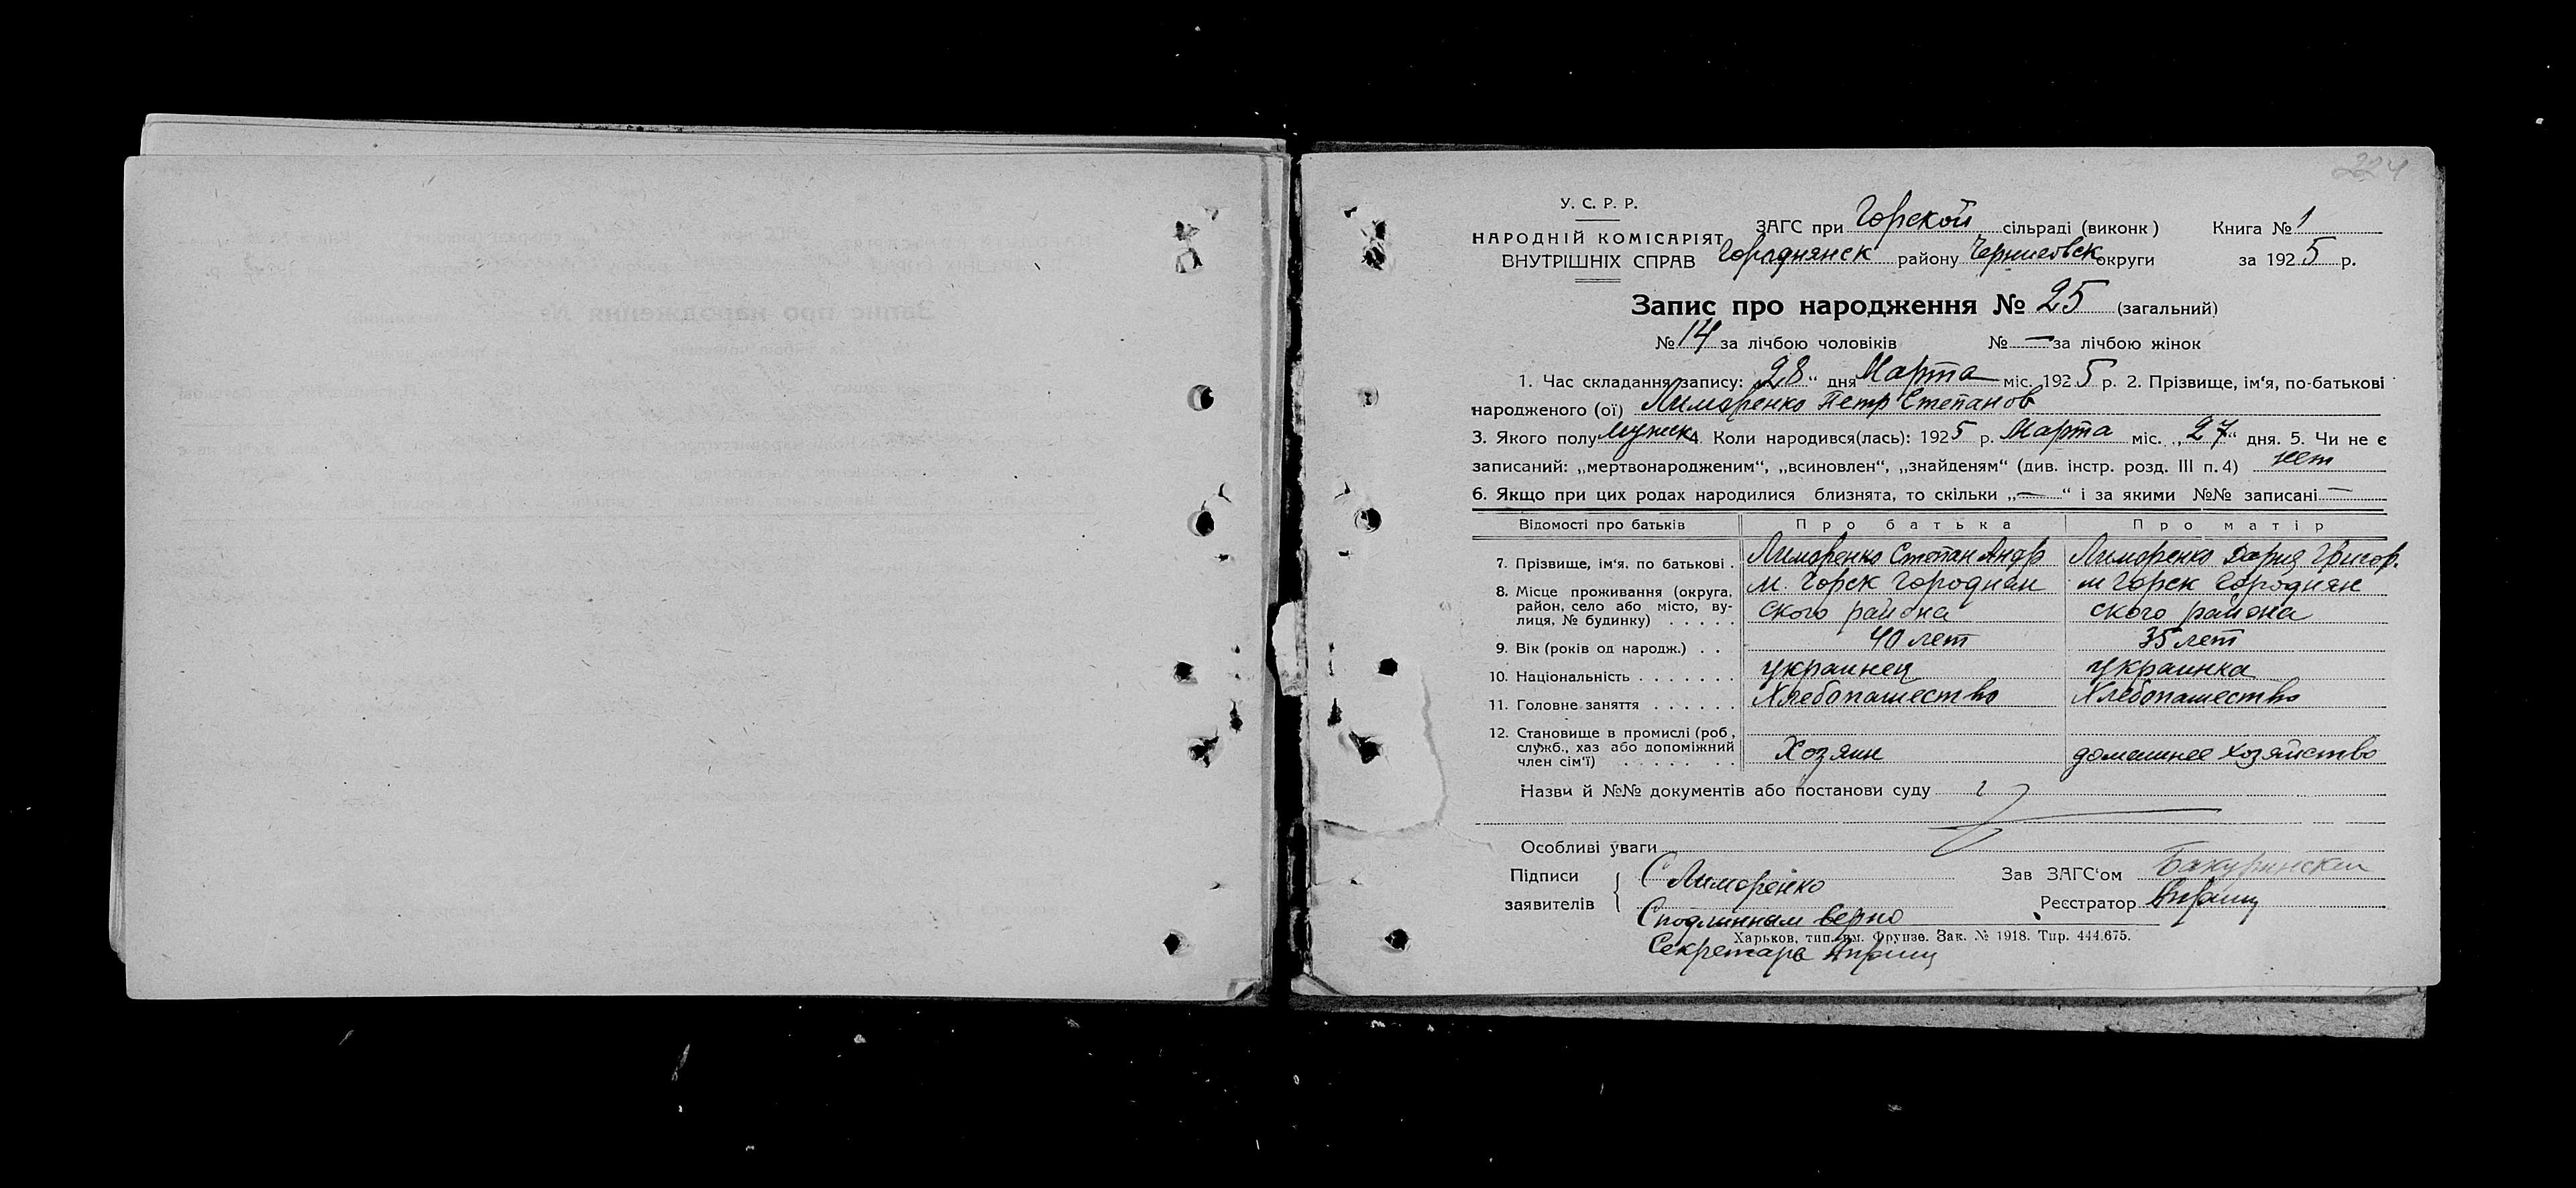 224
У. С. Р. Р.
НАРОДНІЙ КОМІСАРІЯТ
ВНУТРІШНІХ СПРАВ
ЗАГС при Горской сільраді (виконк) Книга № 1
Городнянск району Черниговск округи за 1925 р.
Запис про народження № 25 (загальний)
№ 14 за лічбою чоловіків № — за лічбою жінок
1. Час складання запису: „28“ дня Марта міс. 1925 р. 2. Прізвище, ім‘я, по-батькові
народженого (ої) Лиморенко Петр Степанов
3. Якого полу мужск 4. Коли народився(лась): 1925 р. Марта міс. „27“ дня. 5. Чи не є
записаний: „мертвонародженим“, „всиновлен“, „знайденям“ (див. інстр. розд. III п. 4) нет
6. Якщо при цих родах народилися близнята, то скільки „—“ і за якими №№ записані —
Відомості про батьків Про батька Про матір
7. Прізвище, ім‘я, по батькові . Лиморенко Степан Андр Лиморенко Дария Григор.
8. Місце проживання (округа, м. Горск Городнян м Горск Городнян
район, село або місто, ву- ского района ского района
лиця, № будинку) . . . . .
9. Вік (років од народж.) . . 40 лет 35 лет
10. Національність . . . . . . . украинец украинка
11. Головне заняття . . . . . . Хлебопашество Хлебопашество
12. Становище в промислі (роб,
служб., хаз або допоміжний Хозяин домашнее хозяйство
член сім‘ї) . . . . . . .
Назви й №№ документів або постанови суду
Особливі уваги
Підписи С Лиморенко Зав ЗАГС‘ом
заявителів Реєстратор
С подлинным верно
Харьков, тип. им. Фрунзе. Зак. № 1918. Тир. 444.675.
Секретарь